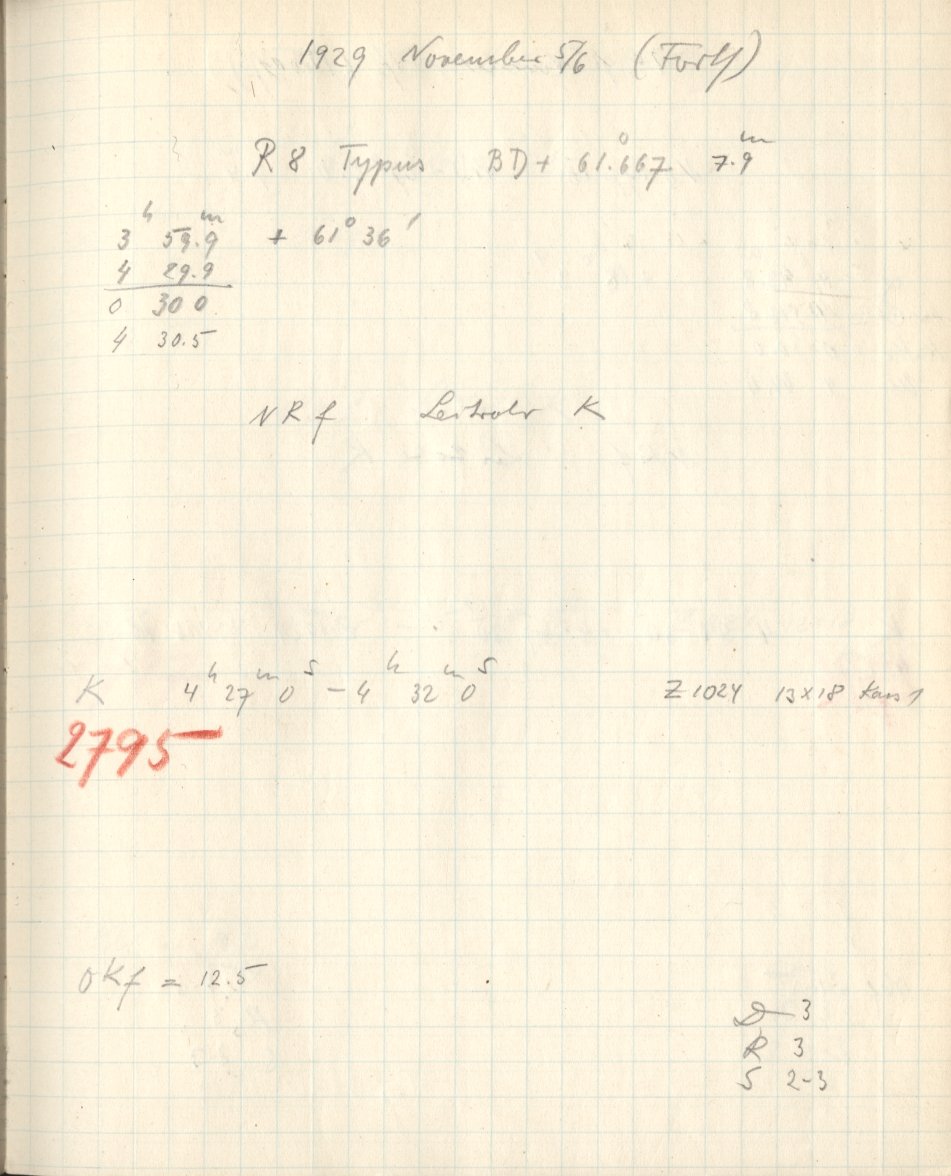 1929 November 5/6 (Forts)
R 8 Typus BD + 61°.667 7.9ᵐ
3ʰ 59.9ᵐ + 61° 36′
4 29.9
0 30 0
4 30.5
NRf Leitrohr K
K 4ʰ 27ᵐ 0ˢ – 4ʰ 32ᵐ 0ˢ Z 1024 13×18 Kass 1
2795
OKf = 12.5
D 3
R 3
S 2-3